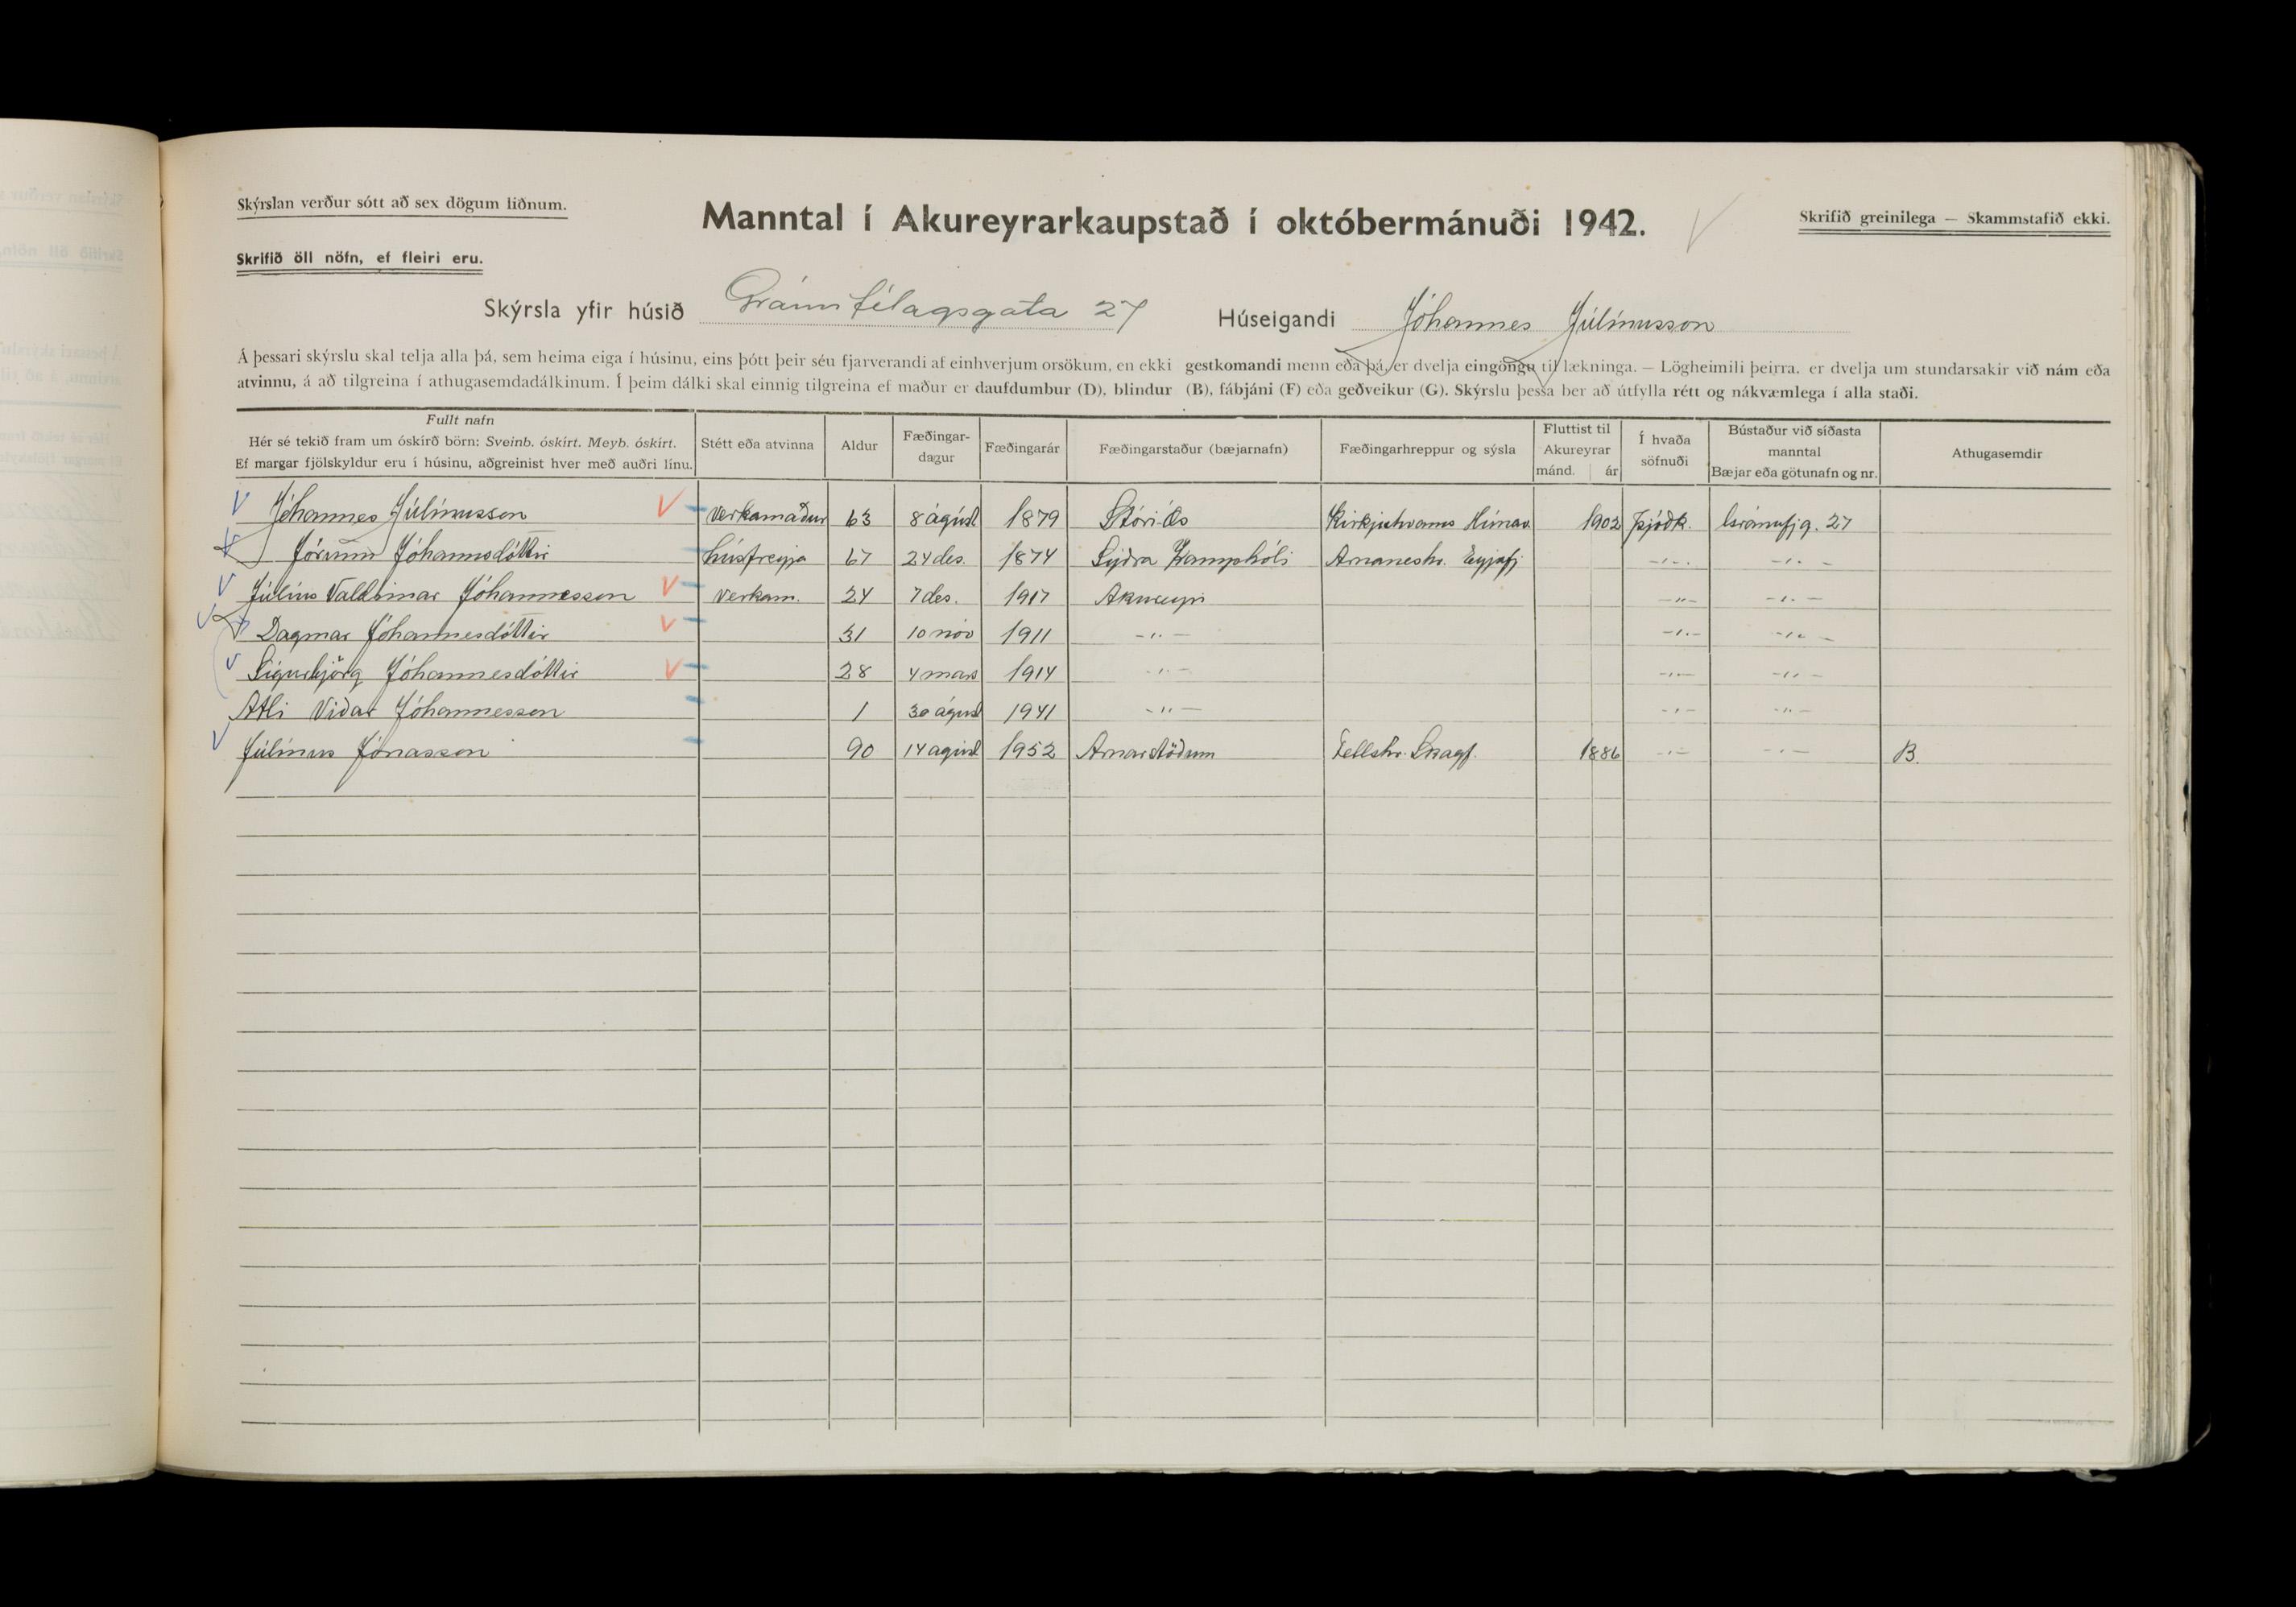 Skýrslan verður sótt að sex dögum liðnum.
Manntal í Akureyrarkaupstað í októbermánuði 1942.
Skrifið greinilega — Skammstafið ekki.
Skrifið öll nöfn, ef fleiri eru.
Skýrsla yfir húsið Gránufélagsgata 27 Húseigandi Jóhannes Júlínusson
Á þessari skýrslu skal telja alla þá, sem heima eiga í húsinu, eins þótt þeir séu fjarverandi af einhverjum orsökum, en ekki gestkomandi menn eða þá, er dvelja eingöngu til lækninga. — Lögheimili þeirra, er dvelja um stundarsakir við nám eða
atvinnu, á að tilgreina í athugasemdadálkinum. Í þeim dálki skal einnig tilgreina ef maður er daufdumbur (D), blindur (B), fábjáni (F) eða geðveikur (G). Skýrslu þessa ber að útfylla rétt og nákvæmlega í alla staði.
Fullt nafn
Hér sé tekið fram um óskírð börn: Sveinb. óskírt. Meyb. óskírt.
Ef margar fjölskyldur eru í húsinu, aðgreinist hver með auðri línu.
Stétt eða atvinna
Aldur
Fæðingar-
dagur
Fæðingarár
Fæðingarstaður (bæjarnafn)
Fæðingarhreppur og sýsla
Fluttist til
Akureyrar
mánd. ár
Í hvaða
söfnuði
Bústaður við síðasta
manntal
Bæjar eða götunafn og nr.
Athugasemdir
Jóhannes Júlínusson Verkamaður 63 8 ágúst 1879 Stóri-Ós Kirkjuhvams Húnav. 1902 Þjóðk. Gránufjg. 27
Jórunn Jóhannsdóttir húsfreyja 67 24 des. 1874 Syðra Kamphóli Arnaneshr. Eyjafj -"- -"-
Júlíus Valdimar Jóhannesson Verkam. 24 7 des. 1917 Akureyri -"- -"-
Dagmar Jóhannesdóttir 31 10 nóv 1911 -"- -"- -"-
Sigurbjörg Jóhannesdóttir 28 4 mars 1914 -"- -"- -"-
Atli Viðar Jóhannesson 1 30 ágúst 1941 -"- -"- -"-
Júlínus Jónasson 90 14 agúst 1952 Arnarstöðum Fellshr. Skagf. 1886 -"- -"- B.